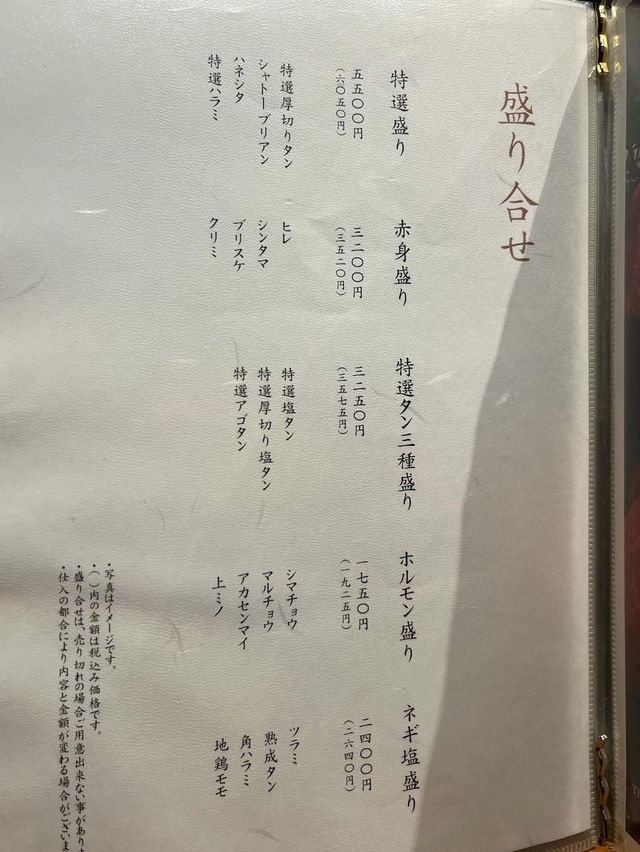 盛り合せ
特選盛り
五五〇〇円
（六〇五〇円）
特選厚切りタン
シャトーブリアン
ハネシタ
特選ハラミ
赤身盛り
三二〇〇円
（三五二〇円）
ヒレ
シンタマ
ブリスケ
クリミ
特選タン三種盛り
三二五〇円
（三五七五円）
特選塩タン
特選厚切り塩タン
特選アゴタン
ホルモン盛り
一七五〇円
（一九二五円）
シマチョウ
マルチョウ
アカセンマイ
上ミノ
ネギ塩盛り
二四〇〇円
（二六四〇円）
ツラミ
熟成タン
角ハラミ
地鶏モモ
・写真はイメージです。
・（ ）内の金額は税込み価格です。
・盛り合せは、売り切れの場合ご用意出来ない事があり
・仕入の都合により内容と金額が変わる場合がございま